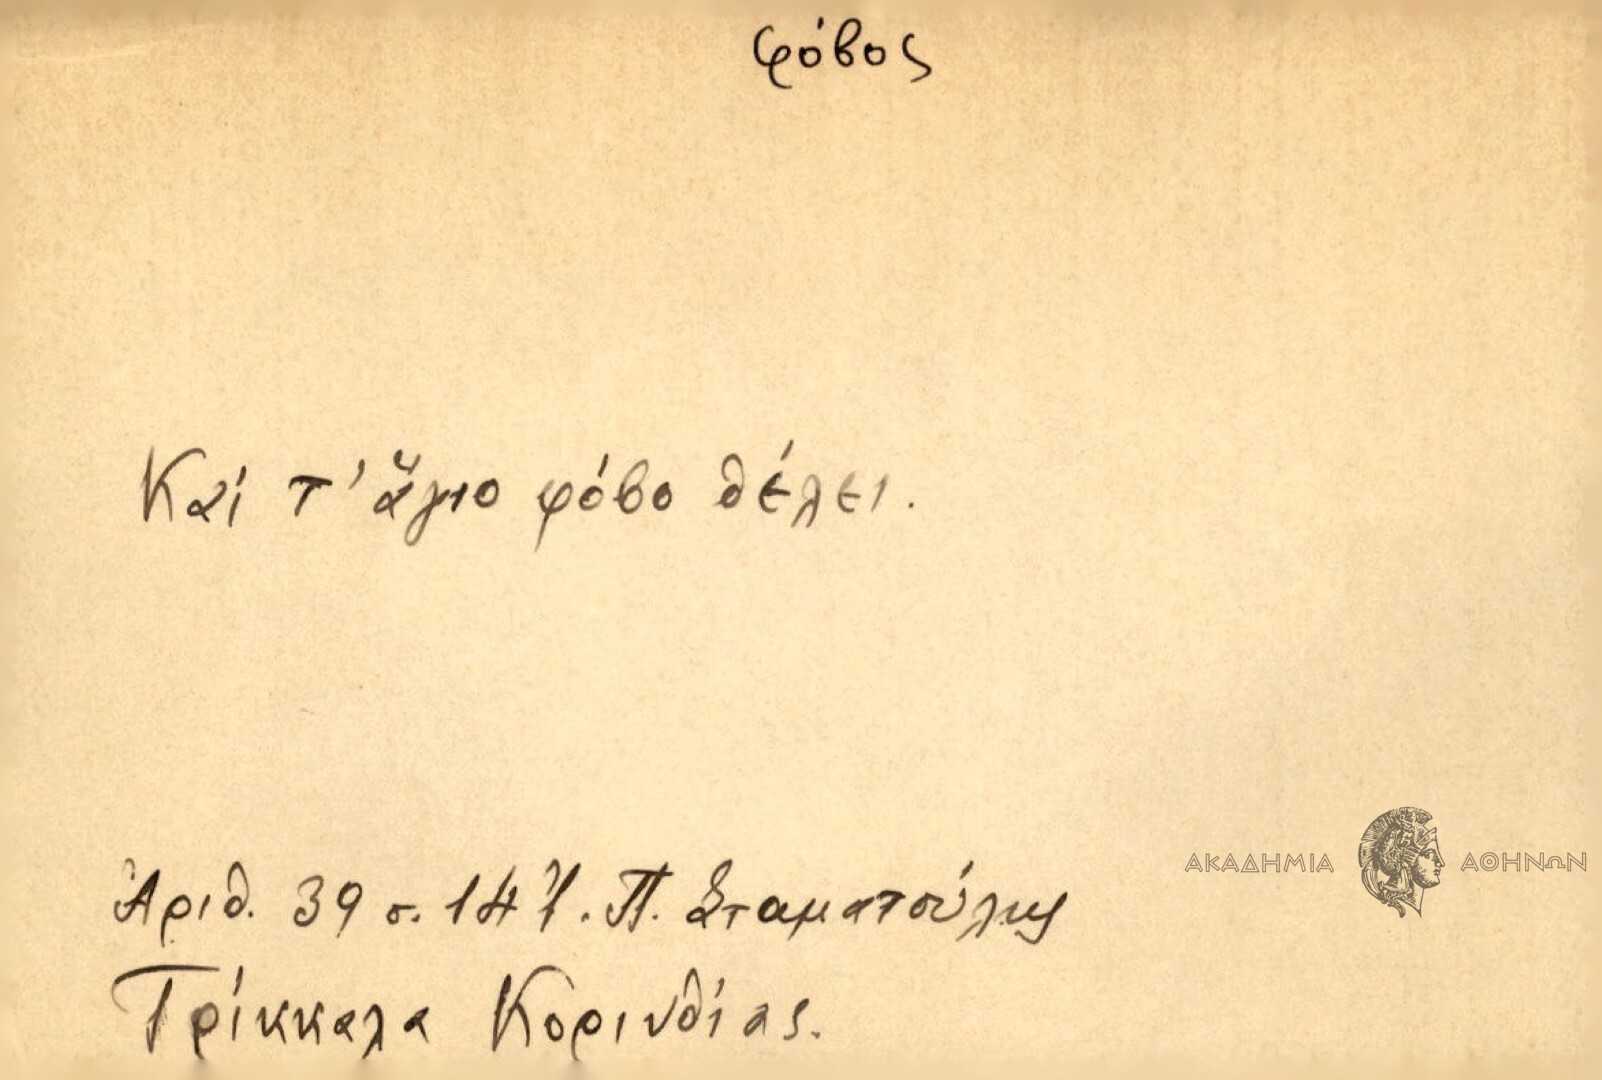 φόβος
Καί τ' ἅγιο φόβο θέλει.
Ἀριθ. 39 σ. 14 Ἰ. Π. Σταματούλης
Τρίκκαλα Κορινθίας.
ΑΚΑΔΗΜΙΑ ΑΘΗΝΩΝ